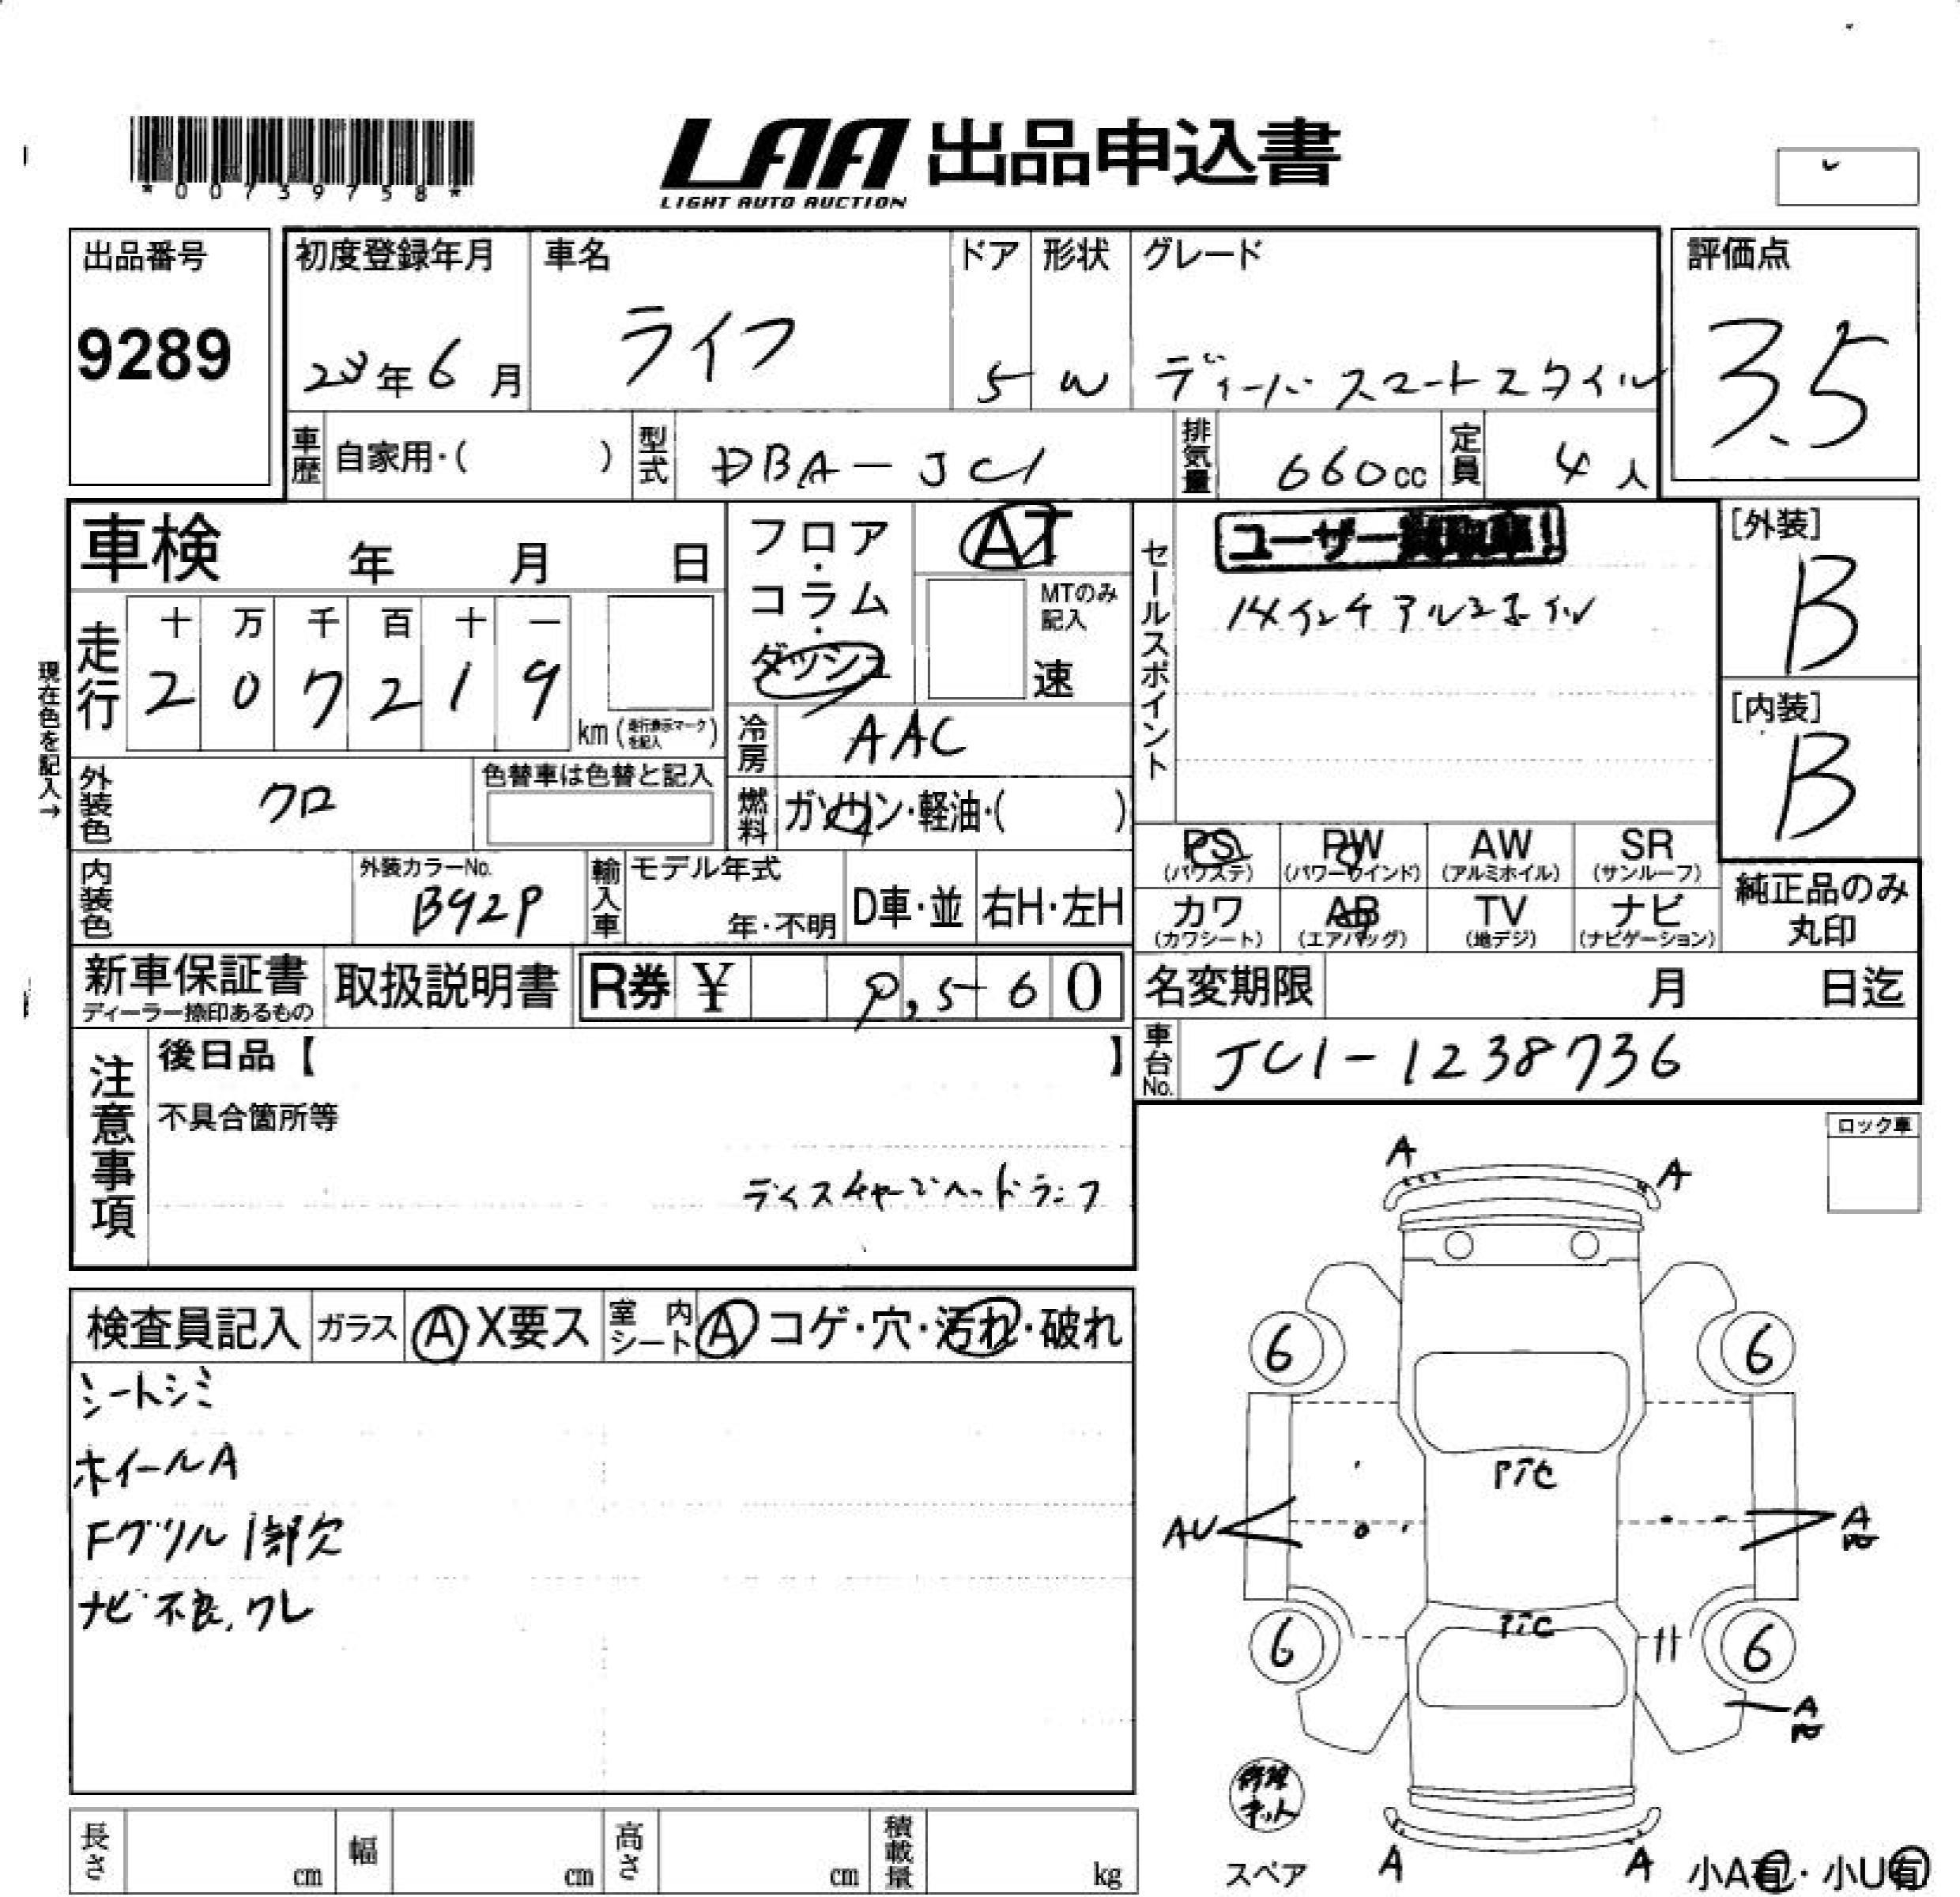 *00739758*
LAA 出品申込書
LIGHT AUTO AUCTION
出品番号
9289
初度登録年月
23年6月
車名
ライフ
ドア
5
形状
W
グレード
ディーバ スマートスタイル
評価点
3.5
車歴
自家用・( )
型式
DBA-JC1
排気量
660cc
定員
4人
車検 年 月 日
フロア・コラム・ダッシュ
AT
MTのみ記入
速
セールスポイント
ユーザー買取車!
14インチアルミホイル
[外装]
B
[内装]
B
現在色を記入→
走行
十 万 千 百 十 一
2 0 7 2 1 9
km(走行表示マークを記入)
冷房
AAC
外装色
クロ
色替車は色替と記入
燃料
ガソリン・軽油・( )
内装色
外装カラーNo.
B92P
輸入車
モデル年式
年・不明
D車・並
右H・左H
PS
(パワステ)
PW
(パワーウインド)
AW
(アルミホイル)
SR
(サンルーフ)
カワ
(カワシート)
AB
(エアバッグ)
TV
(地デジ)
ナビ
(ナビゲーション)
純正品のみ
丸印
新車保証書
ディーラー捺印あるもの
取扱説明書
R券 ¥ 9,560
名変期限 月 日迄
車台No.
JC1-1238736
注意事項
後日品【 】
不具合箇所等
ディスチャージヘッドランプ
ロック車
検査員記入
ガラス
A X要ス
室内シート
A コゲ・穴・汚れ・破れ
シートシミ
ホイールA
Fグリル1部欠
ナビ不良,ワレ
A
A
6
6
アンテナ
AU
A
6
6
A
修理キット
スペア
A
A
小A有・小U有
長さ cm
幅 cm
高さ cm
積載量 kg